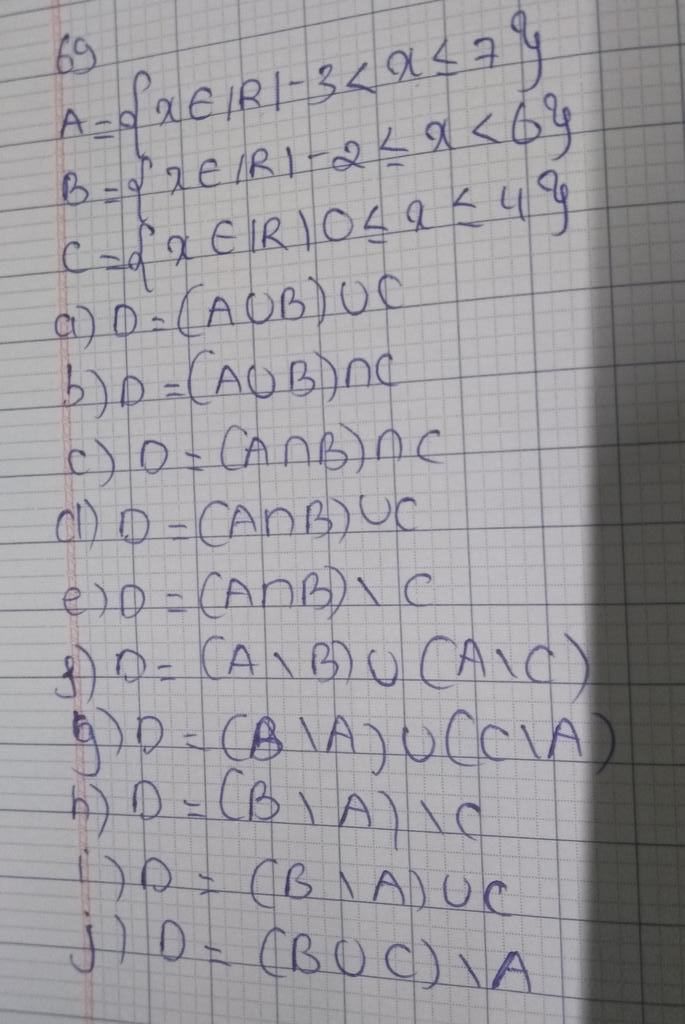 69
A = {x ∈ IR | -3 < x ≤ 7}
B = {x ∈ IR | -2 ≤ x < 6}
C = {x ∈ IR | 0 ≤ x ≤ 4}
a) D = (A∪B) ∪ C
b) D = (A∪B) ∩ C
c) D = (A∩B) ∩ C
d) D = (A∩B) ∪ C
e) D = (A∩B) \ C
f) D = (A \ B) ∪ (A \ C)
g) D = (B \ A) ∪ (C \ A)
h) D = (B \ A) \ C
i) D = (B \ A) ∪ C
j) D = (B ∪ C) \ A